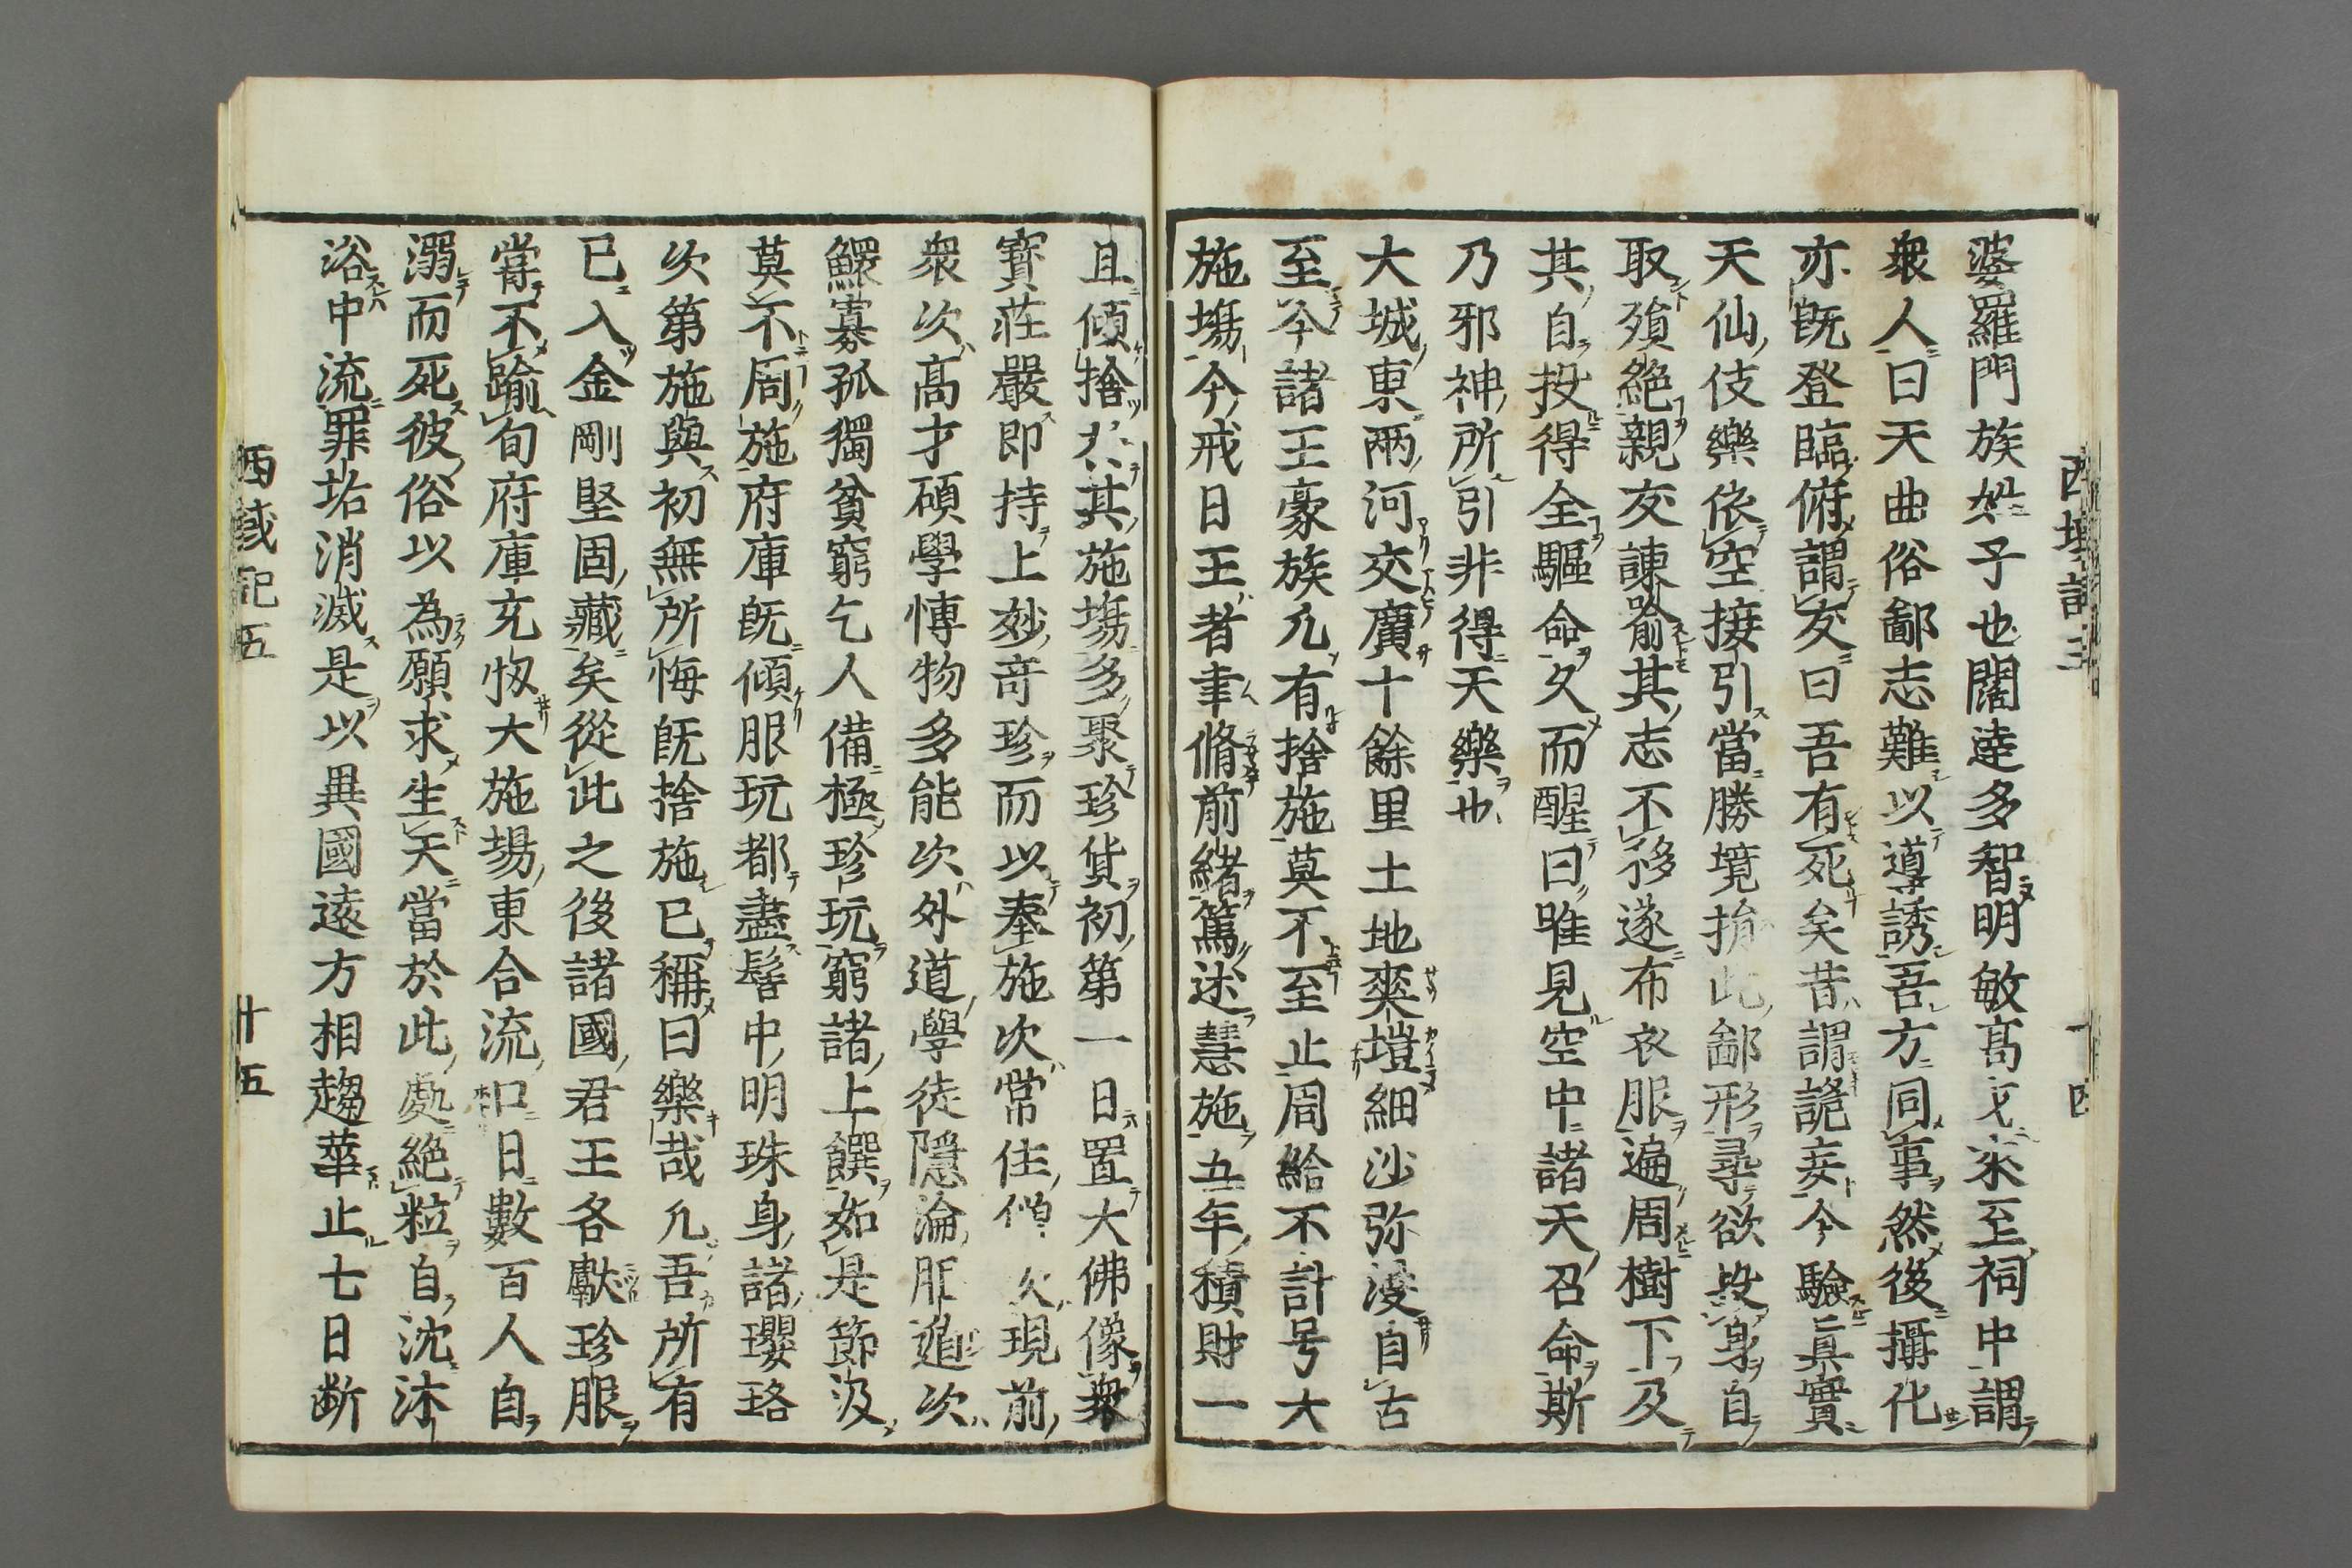 婆羅門族姓子也闊達多智明敏髙才來至祠中謂
衆人曰天曲俗鄙志難以導誘吾方同事然後攝化
亦既登臨俯謂友曰吾有死矣昔謂詭妄今驗真實
天仙伎樂依空接引當勝境捐此鄙形尋欲投身自
取殞絶親友諫喻其志不移遂布衣服遍周樹下及
其自投得全驅命久而醒曰唯見空中諸天召命斯
乃邪神所引非得天樂也
大城東兩河交廣十餘里土地爽塏細沙弥漫自古
至今諸王豪族凡有捨施莫不至止周給不計号大
施塲今戒日王者聿脩前緒篤述慧施五年積財一
且傾捨於其施塲多聚珍貨初第一日置大佛像衆
寳莊嚴即持上妙竒珍而以奉施次常住僧次現前
衆次髙才碩學愽物多能次外道學徒隱淪肥遁次
鰥寡孤獨貧窮乞人備極珍玩窮諸上饌如是節級
莫不周施府庫既傾服玩都盡髻中明珠身諸瓔珞
次第施與初無所悔既捨施已稱曰樂哉凡吾所有
已入金剛堅固藏矣從此之後諸國君王各獻珍服
甞不踰旬府庫充牣大施場東合流口日數百人自
溺而死彼俗以為願求生天當於此處絶粒自沈沐
浴中流罪垢消滅是以異國遠方相趨萃止七日断
西域記五
十五